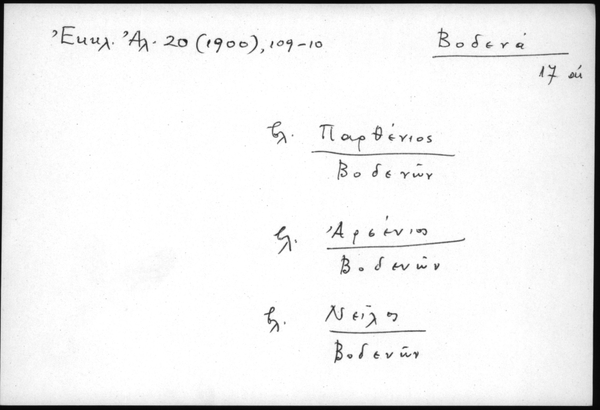 Ἐκκλ. Ἀλ. 20 (1900), 109-10
Βοδενά
17 αἰ
βλ. Παρθένιος
Βοδενῶν
βλ. Ἀρσένιος
Βοδενῶν
βλ. Νεῖλος
Βοδενῶν